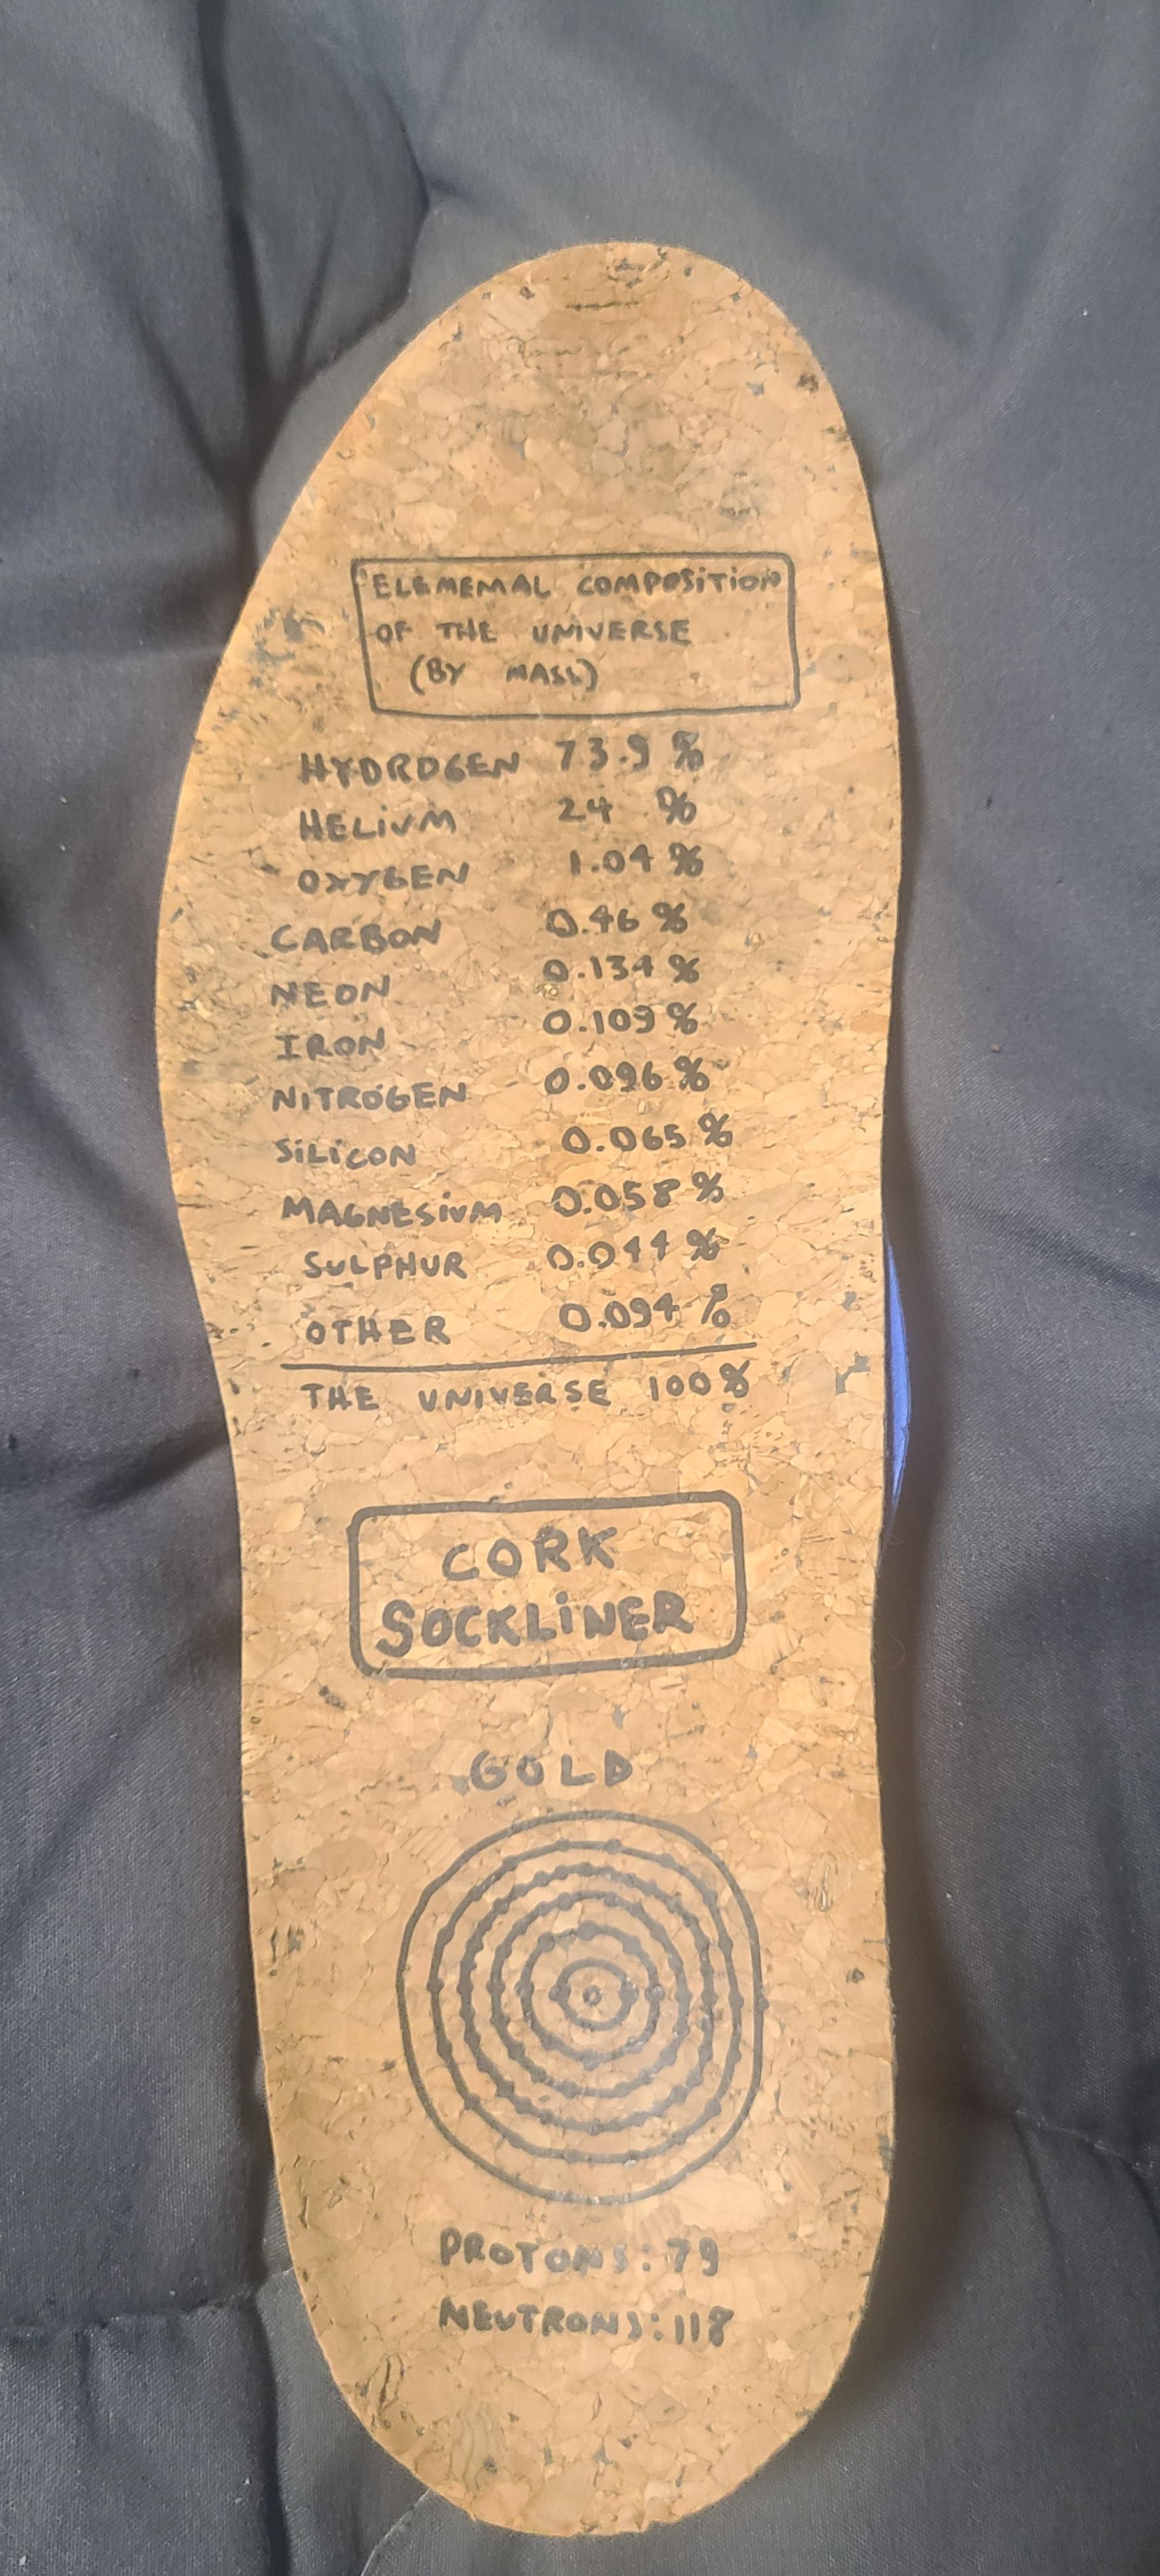 ELEMEMAL COMPOSITION
OF THE UNIVERSE
(BY MASS)
HYDROGEN 73.9 %
HELIUM 24 %
OXYGEN 1.04 %
CARBON 0.46 %
NEON 0.134 %
IRON 0.109 %
NITROGEN 0.096 %
SILICON 0.065 %
MAGNESIUM 0.058 %
SULPHUR 0.044 %
OTHER 0.094 %
THE UNIVERSE 100 %
CORK
SOCKLINER
GOLD
PROTONS: 79
NEUTRONS: 118